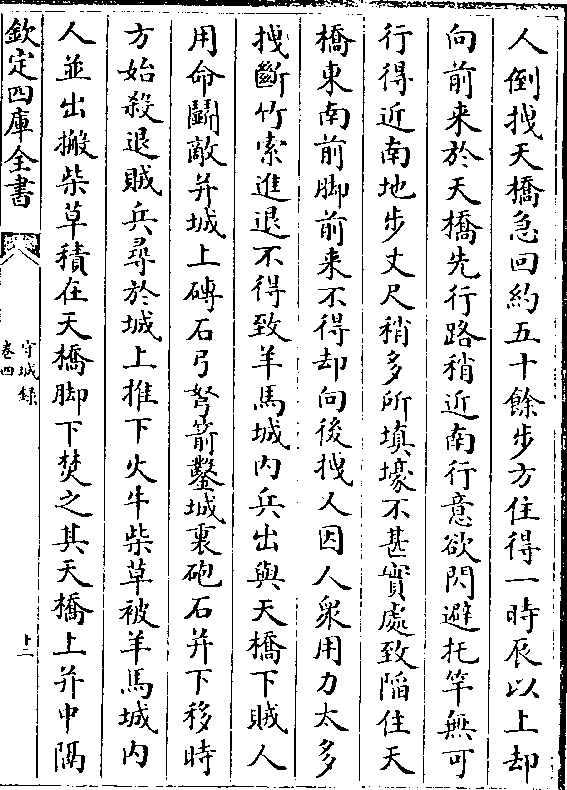 人倒拽天橋急回約五十餘步方住得一時辰以上却
向前来於天橋先行路稍近南行意欲閃避托竿無可
行得近南地步丈尺稍多所填壕不甚實處致陷住天
橋東南前脚前来不得却向後拽人因人衆用力太多
拽斷竹索進退不得致羊馬城内兵出與天橋下賊人
用命鬭敵并城上磚石弓弩箭鑿城裏砲石并下移時
方始殺退賊兵尋於城上推下火牛柴草被羊馬城内
人並出搬柴草積在天橋脚下焚之其天橋上并中隔
欽定四庫全書
守城録
卷四
十二